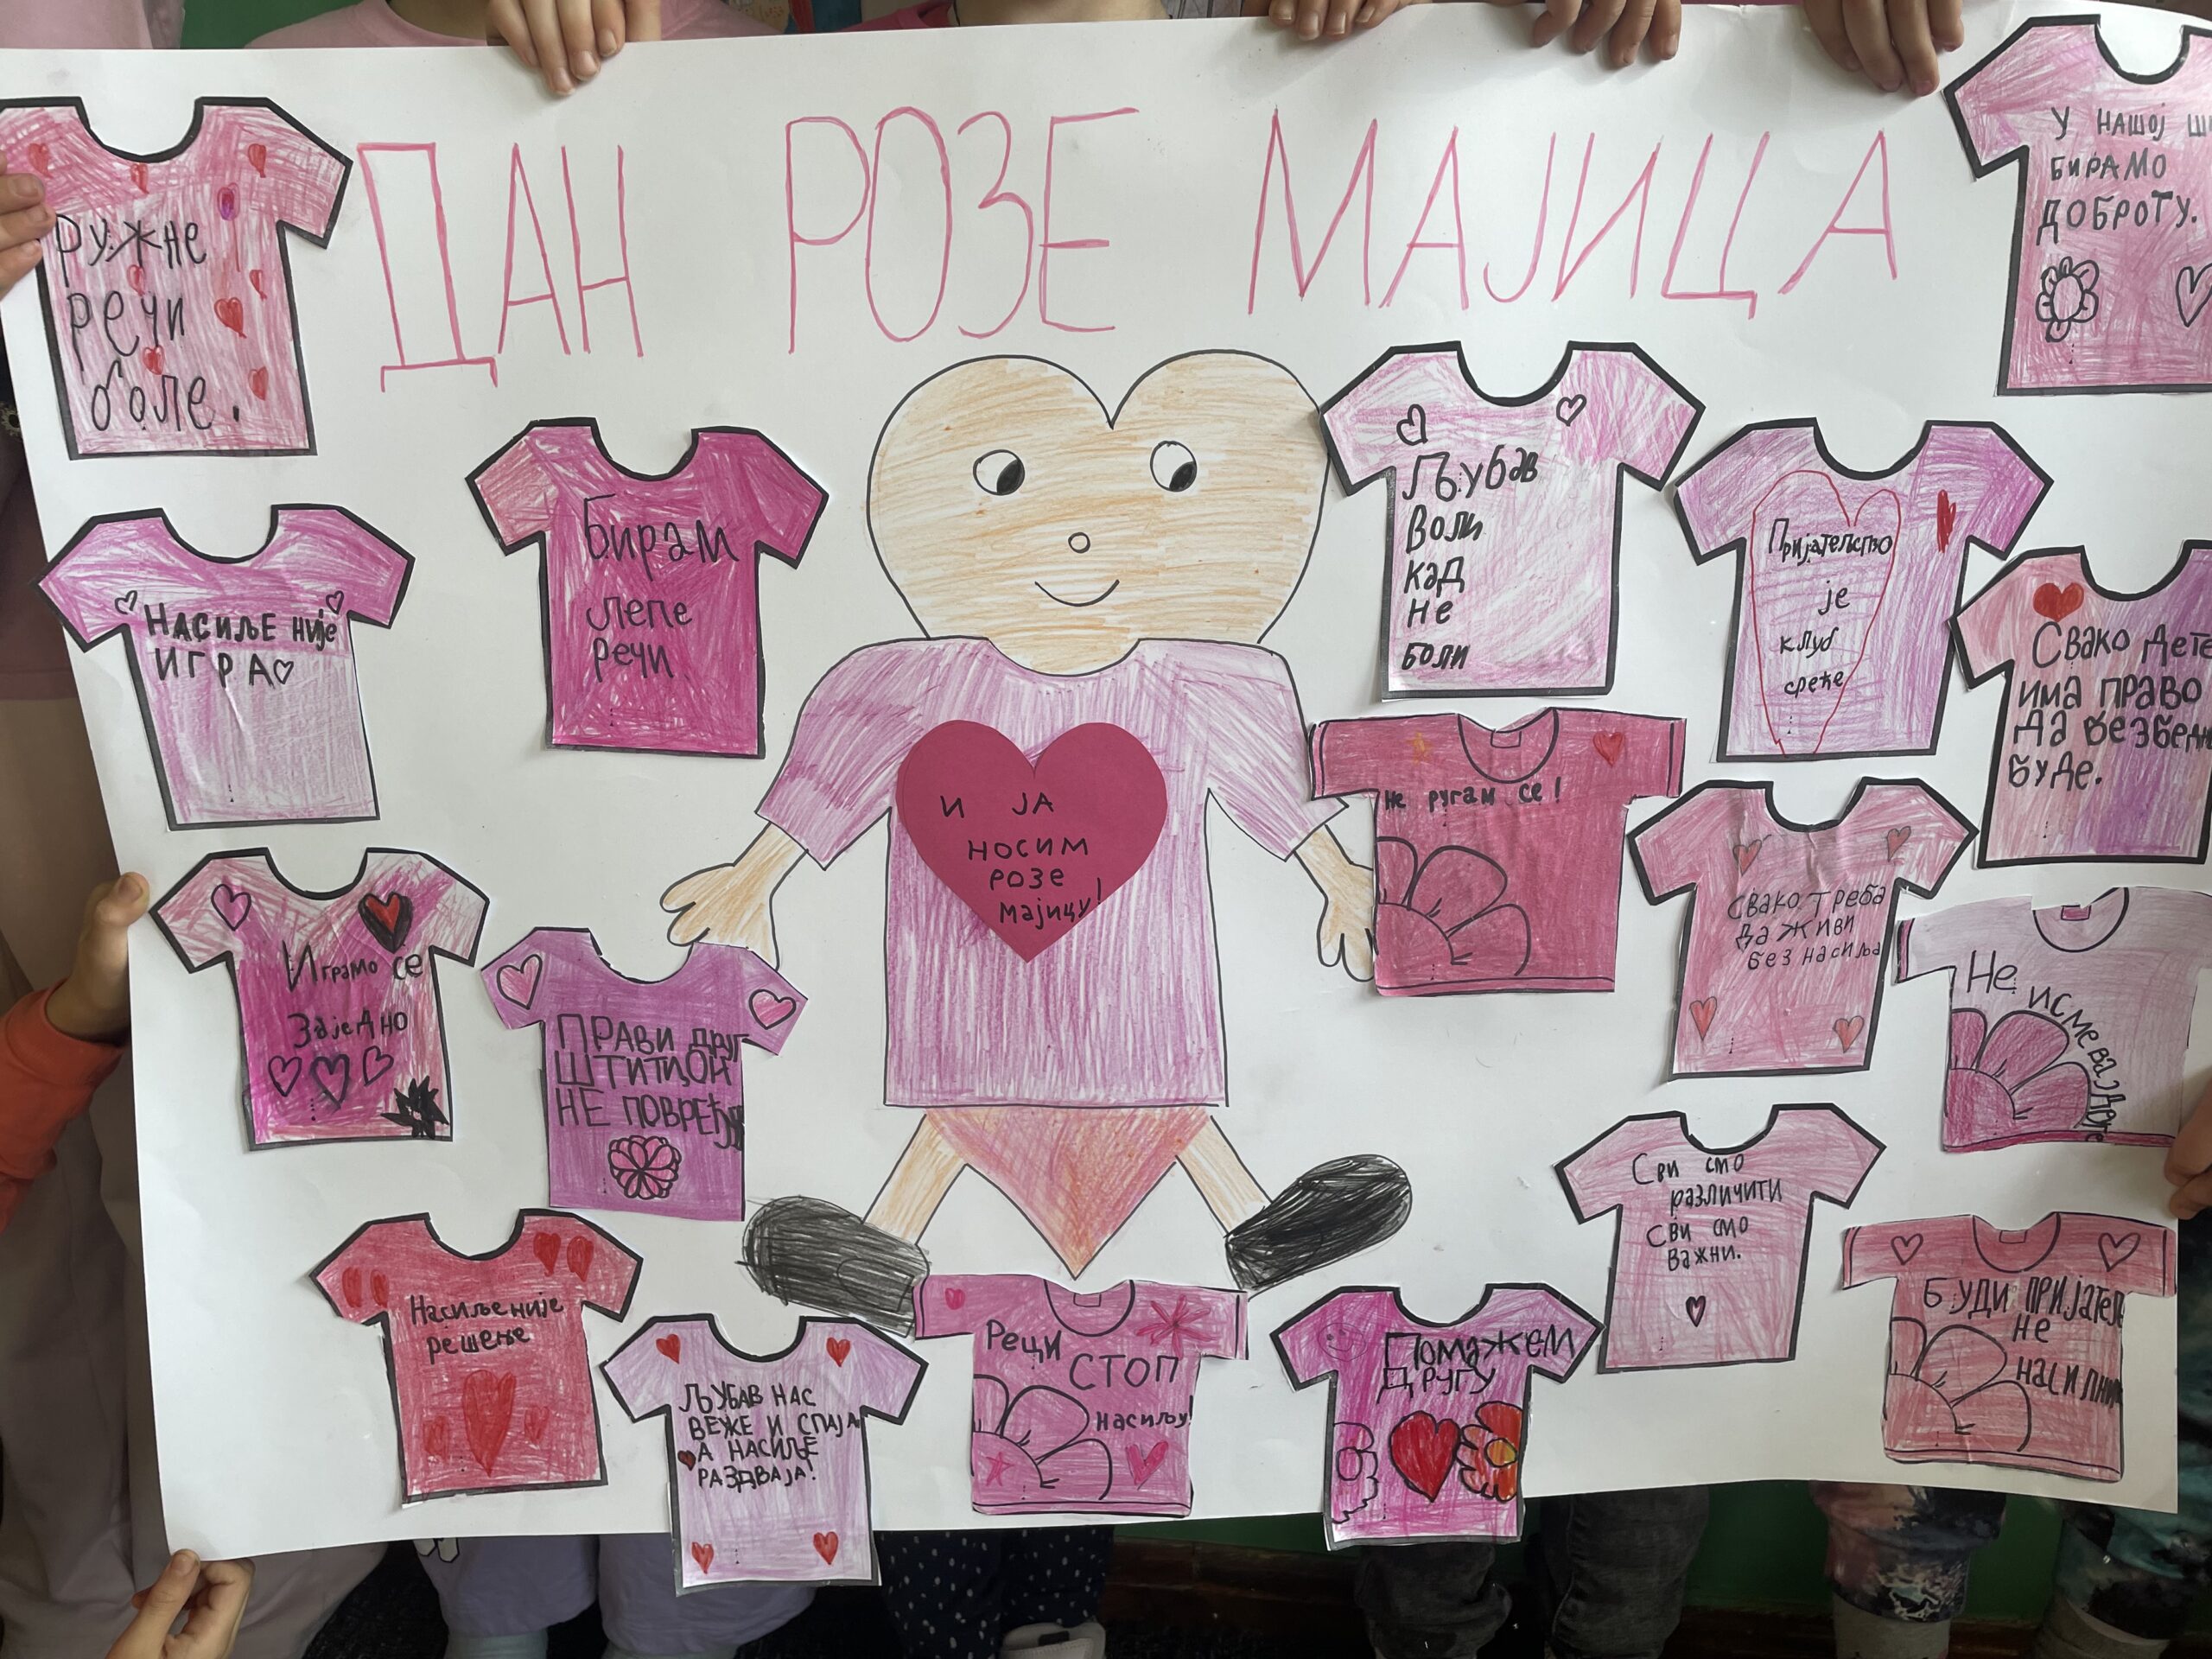 ДАН РОЗЕ МАЈИЦА
РУЖНЕ
РЕЧИ
боле.
У НАШОЈ
БИРАМО
ДОБРОТУ.
Бирам
лепе
речи
ЉУБАВ
ВОЛИ
КАД
НЕ
БОЛИ
Пријатељство
је
клуб
среће
НАСИЉЕ НИЈЕ
ИГРА
СВАКО ДЕТЕ
ИМА ПРАВО
ДА БЕЗБЕДН
БУДЕ.
И ЈА
НОСИМ
РОЗЕ
МАЈИЦУ!
Не ругам се!
СВАКО ТРЕБА
ДА ЖИВИ
БЕЗ НАСИЉА
Играмо се
Заједно
ПРАВИ ДРУГ
ШТИТИ, ОН
НЕ ПОВРЕЂУЈ
Не исмевај друге
Сви смо
различити
Сви смо
важни.
Насиље није
решење
ЉУБАВ НАС
ВЕЖЕ И СПАЈА
А НАСИЉЕ
РАЗДВАЈА!
Реци
СТОП
насиљу!
Помажем
другу
БУДИ ПРИЈАТЕЉ
НЕ
НАСИЛНИК